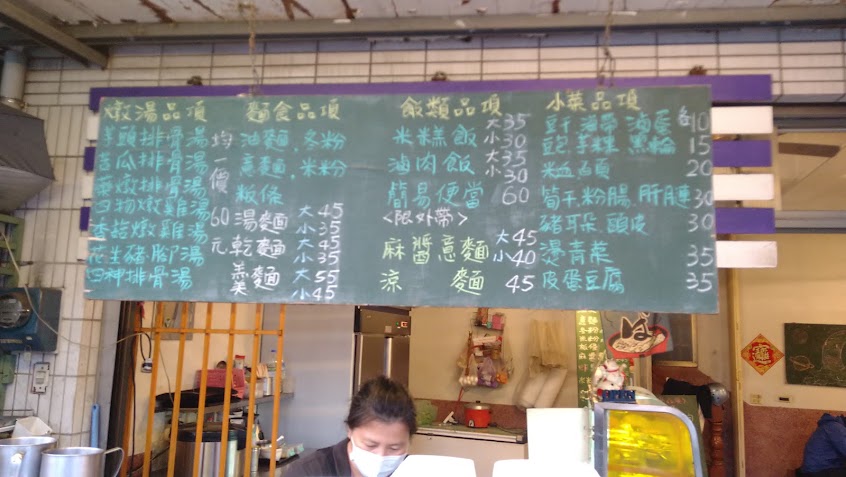 燉湯品項
芋頭排骨湯
苦瓜排骨湯
藥燉排骨湯
四物燉雞湯
香菇燉雞湯
花生豬腳湯
四神排骨湯
均一價60元
麵食品項
油麵,冬粉
意麵,米粉
粄條
湯麵 大45
小35
乾麵 大45
小35
羹麵 大55
小45
飯類品項
米糕飯 大35
小30
滷肉飯 大35
小30
簡易便當 60
<限外帶>
麻醬意麵 大45
小40
涼麵 45
小菜品項
豆干 海帶 滷蛋 各10
黑輪 15
米血 百頁 20
筍干,粉腸,肝膁 30
豬耳朵,頭皮 30
燙青菜 35
皮蛋豆腐 35